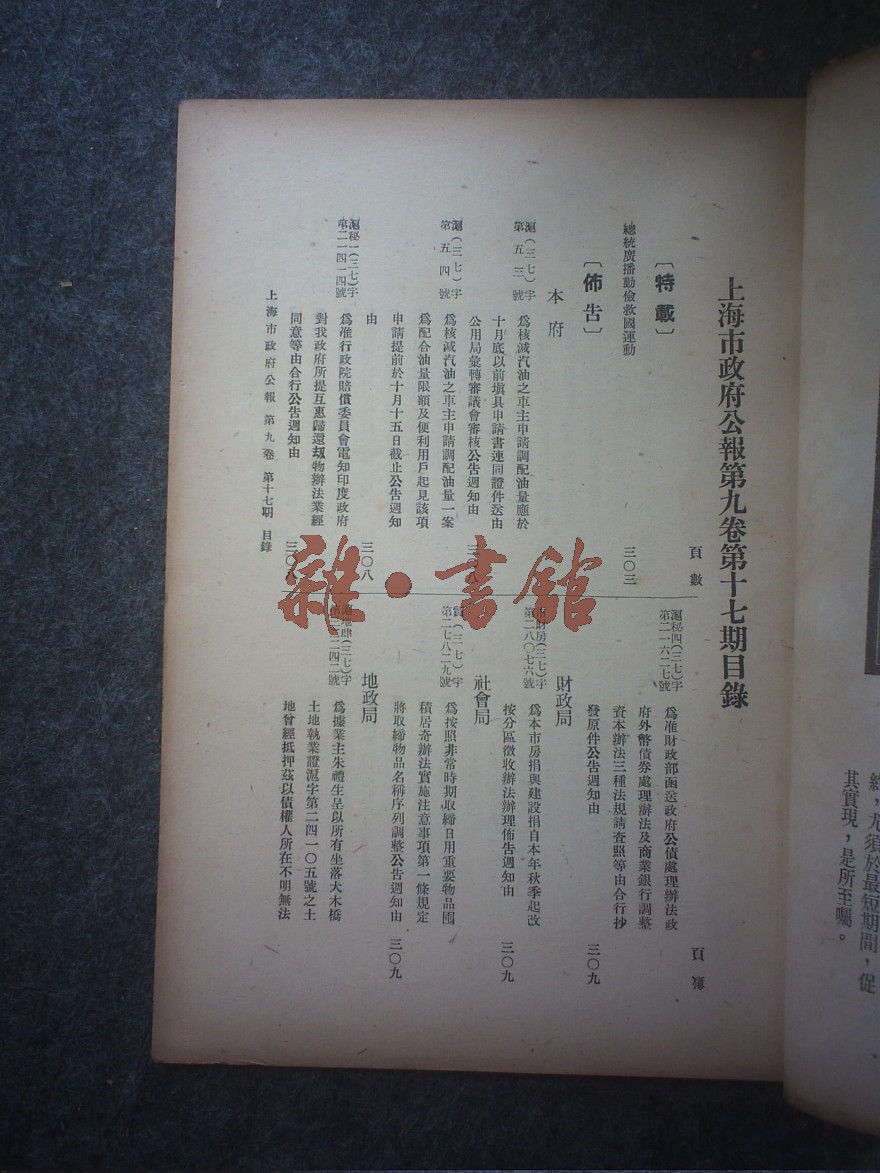 上海市政府公報第九卷第十七期目錄
頁數
〔特載〕
總統廣播勤儉救國運動
三〇三
〔佈告〕
本府
滬(三七)字
第五三號
爲核減汽油之車主申請調配油量應於
十月底以前塡具申請書連同證件送由
公用局彙轉審議會審核公告週知由
滬(三七)字
第五四號
爲核減汽油之車主申請調配油量一案
爲配合油量限額及便利用戶起見該項
申請提前於十月十五日截止公告週知
由
三〇八
滬秘一(三七)字
第二一四一四號
爲准行政院賠償委員會電知印度政府
對我政府所提互惠歸還刼物辦法業經
同意等由合行公告週知由
三〇八
頁數
滬秘四(三七)字
第二一六二七號
爲准財政部函送政府公債處理辦法政
府外幣債券處理辦法及商業銀行調整
資本辦法三種法規請查照等由合行抄
發原件公告週知由
三〇九
財政局
市財房(三七)字
第二八〇七六號
爲本市房捐與建設捐自本年秋季起改
按分區徵收辦法辦理佈告週知由
三〇九
社會局
(三七)字
第二七八二九號
爲按照非常時期取締日用重要物品囤
積居奇辦法實施注意事項第一條規定
將取締物品名稱序列調整公告週知由
三〇九
地政局
滬地肆(三七)字
爲據業主朱禮生呈以所有坐落大木橋
土地執業證滬字第二四一〇五號之土
地曾經抵押茲以債權人所在不明無法
上海市政府公報 第九卷 第十七期 目錄
雜·書館
尤須於最短期間，促
其實現，是所至囑。